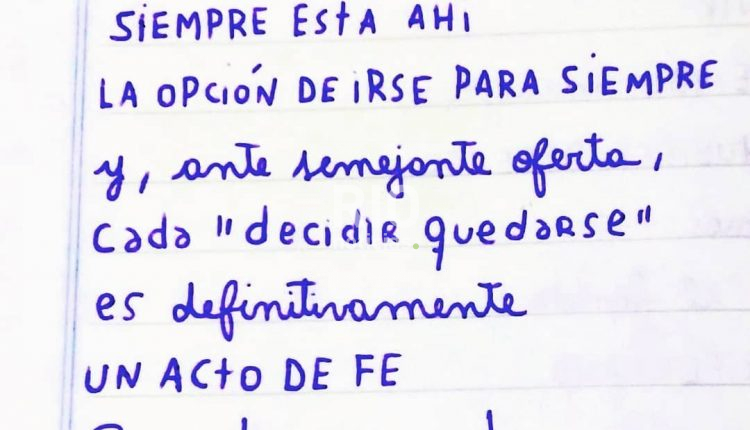 SiEMPRE EStA AHi
LA OPCIÓN DE iRSE PARA SiEMPRE
y, ante semejante oferta,
cada "decidir quedarse"
es definitivamente
UN ACtO DE FE